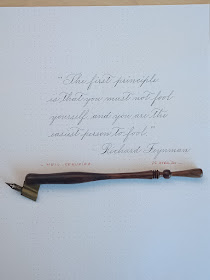 "The first principle
is that you must not fool
yourself, and you are the
easiest person to fool."
- Richard Feynman